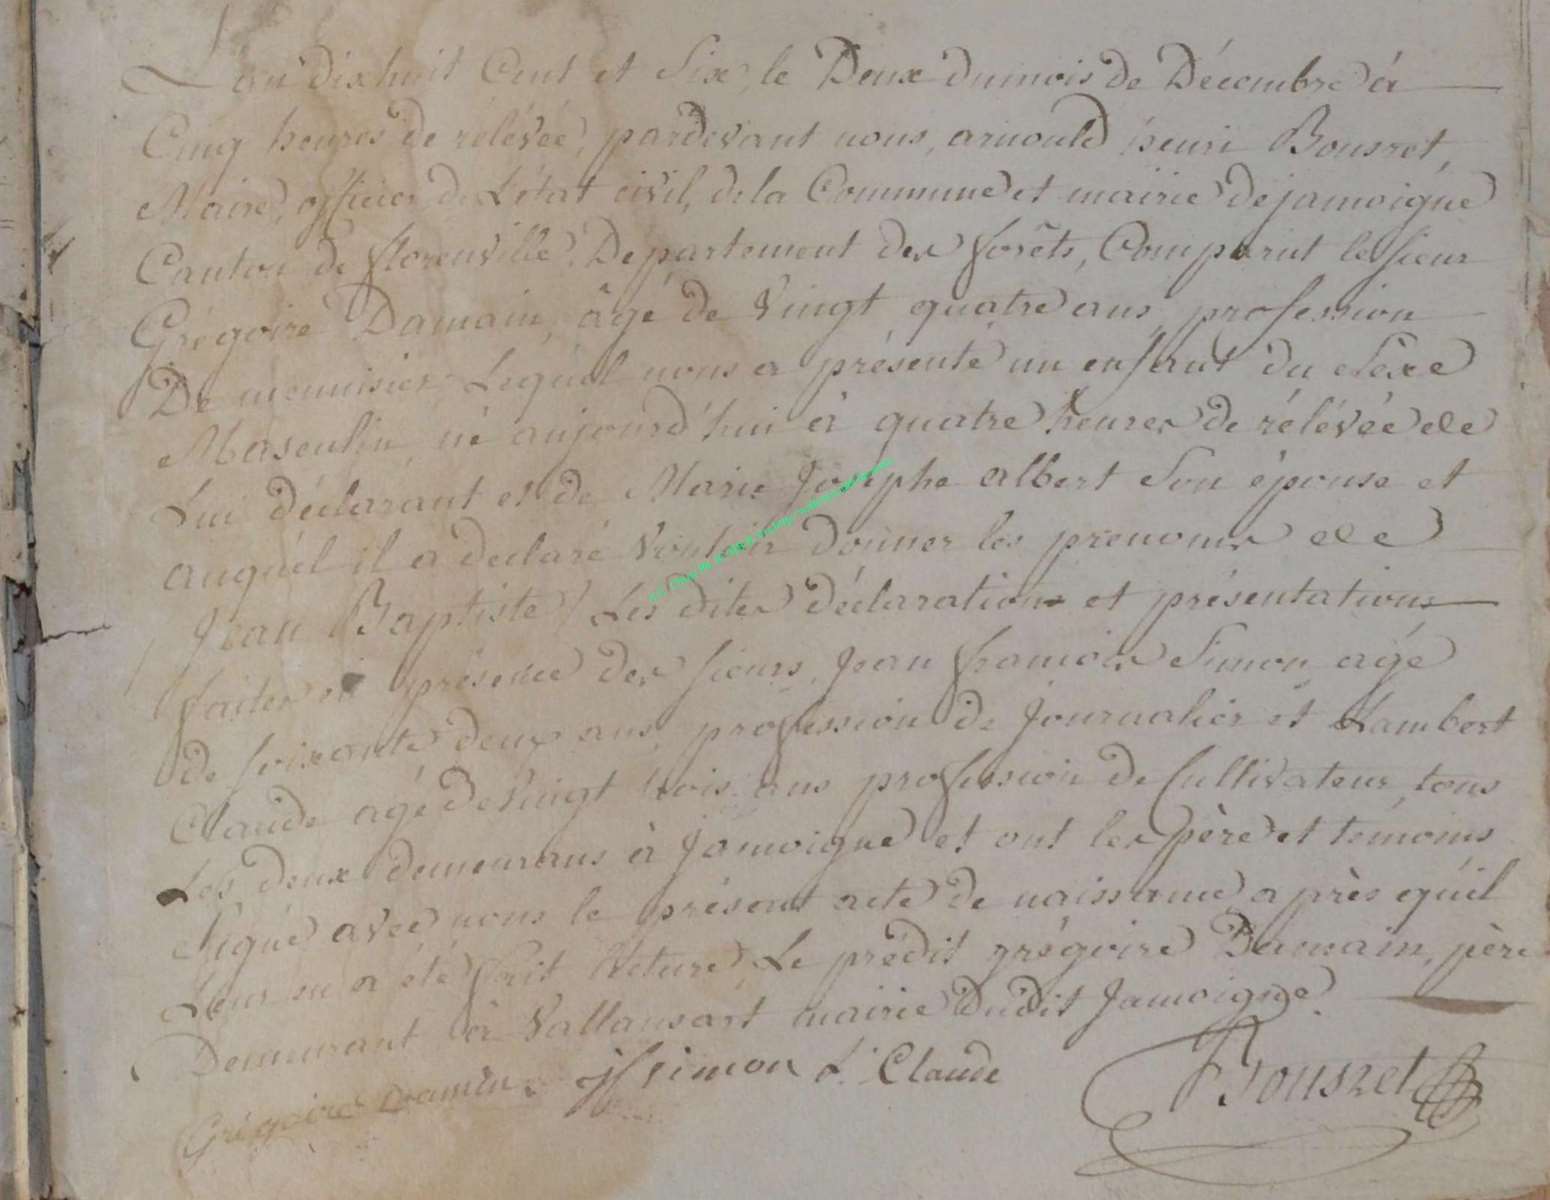 L'an dix huit Cent et Six, le Deux du mois de Décembre à
Cinq heures de rélévée, pardevant nous, arnould henri Bousret,
Maire, officier de L'état civil, de la Commune et mairie de jamoigne
Canton de florenville, Departement des forêts, Comparut le sieur
Grégoire Damain, âgé de Vingt quatre ans, profession
De menuisier, Lequél nous a présenté un enfant du sexe
Masculin, né aujourd'hui à quatre heures de rélévée de
Lui déclarant et de Marie Josephe albert Son épouse et
auquél il a declaré Vouloir donner les prenoms de
Jean Baptiste / Les dites déclaration et présentations
faites en présence des sieurs Jean francois Simon agé
de soixante deux ans, profession de Journalier et Lambert
Claude agé de Vingt trois ans profession de Cultivateur, tous
Les deux demeurans à Jamoigne et ont les père et temoins
Signé avec nous le présent acte de naissance après qu'il
Leur en a été fait lecture, Le prédit grégoire Damain, père
Demeurant à Vallansart mairie dudit Jamoigne.
Grégoire Damain jf simon L. Claude Bousret